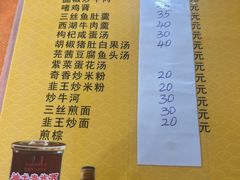 啫鸡肾
三丝鱼肚羹 35
西湖牛肉羹 40
枸杞咸蛋汤 30
胡椒猪肚白果汤 40
芫茜豆腐鱼头汤
紫菜蛋花汤
奇香炒米粉 20
韭王炒米粉 20
炒牛河 30
三丝煎面 30
韭王炒面 20
煎棕
元
元
元
元
元
元
元
元
元
元